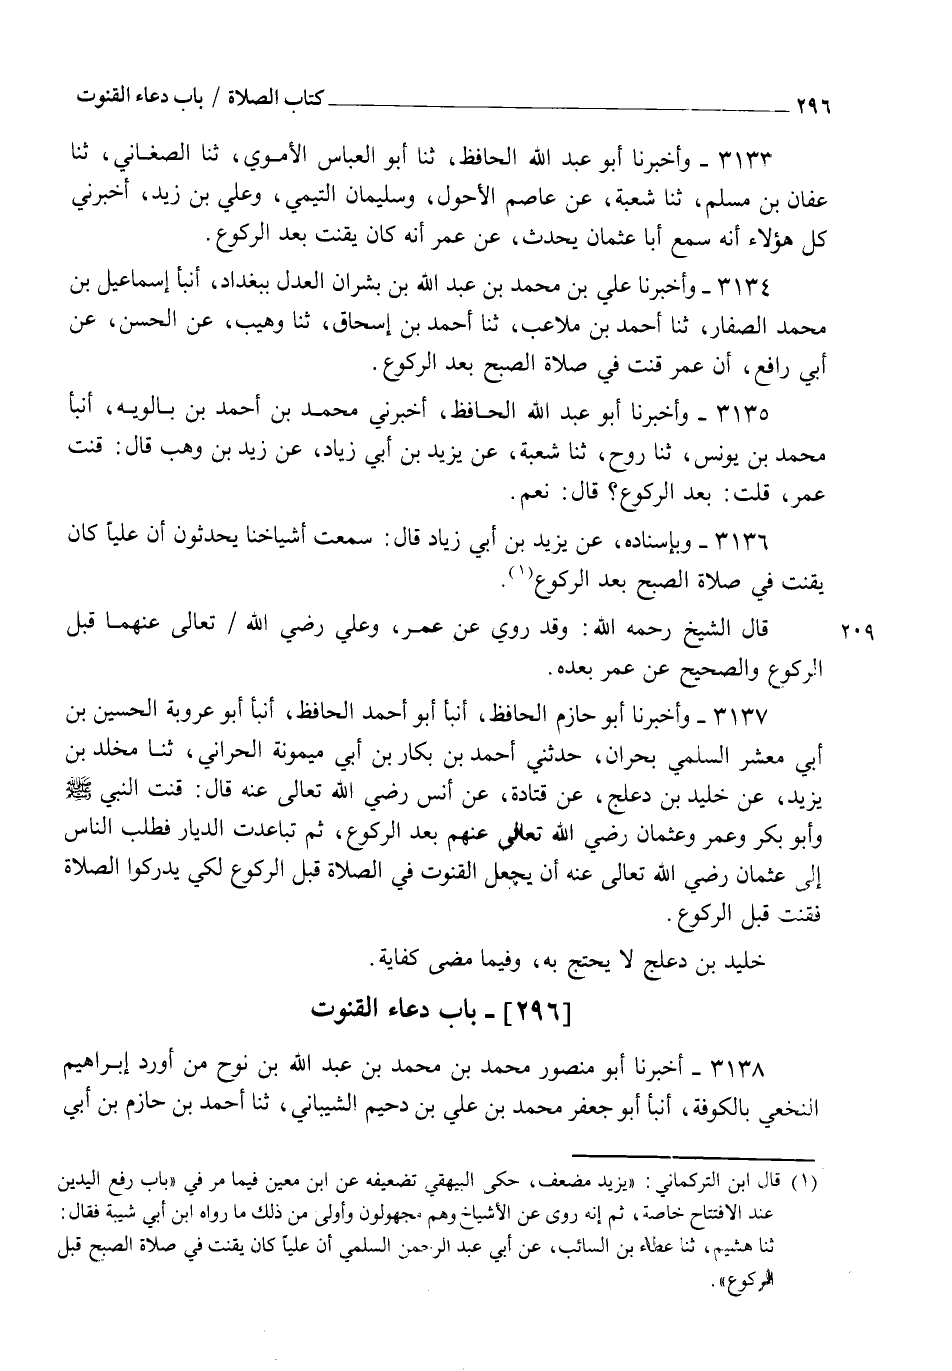 ٢٩٦ ــــــــــ كتاب الصلاة / باب دعاء القنوت
٣١٣٣ ـ وأخبرنا أبو عبد الله الحافظ، ثنا أبو العباس الأموي، ثنا الصغاني، ثنا
عفان بن مسلم، ثنا شعبة، عن عاصم الأحول، وسليمان التيمي، وعلي بن زيد، أخبرني
كل هؤلاء أنه سمع أبا عثمان يحدث، عن عمر أنه كان يقنت بعد الركوع.
٣١٣٤ ـ وأخبرنا علي بن محمد بن عبد الله بن بشران العدل ببغداد، أنبأ إسماعيل بن
محمد الصفار، ثنا أحمد بن ملاعب، ثنا أحمد بن إسحاق، ثنا وهيب، عن الحسن، عن
أبي رافع، أن عمر قنت في صلاة الصبح بعد الركوع.
٣١٣٥ ـ وأخبرنا أبو عبد الله الحافظ، أخبرني محمد بن أحمد بن بالويه، أنبأ
محمد بن يونس، ثنا روح، ثنا شعبة، عن يزيد بن أبي زياد، عن زيد بن وهب قال: قنت
عمر، قلت: بعد الركوع؟ قال: نعم.
٣١٣٦ ـ وبإسناده، عن يزيد بن أبي زياد قال: سمعت أشياخنا يحدثون أن علياً كان
يقنت في صلاة الصبح بعد الركوع(١).
قال الشيخ رحمه الله: وقد روي عن عمر، وعلي رضي الله / تعالى عنهما قبل ٢٠٩
الركوع والصحيح عن عمر بعده.
٣١٣٧ ـ وأخبرنا أبو حازم الحافظ، أنبأ أبو أحمد الحافظ، أنبأ أبو عروبة الحسين بن
أبي معشر السلمي بحران، حدثني أحمد بن بكار بن أبي ميمونة الحراني، ثنا مخلد بن
يزيد، عن خليد بن دعلج، عن قتادة، عن أنس رضي الله تعالى عنه قال: قنت النبي ﷺ
وأبو بكر وعمر وعثمان رضي الله تعالى عنهم بعد الركوع، ثم تباعدت الديار فطلب الناس
إلى عثمان رضي الله تعالى عنه أن يجعل القنوت في الصلاة قبل الركوع لكي يدركوا الصلاة
فقنت قبل الركوع.
خليد بن دعلج لا يحتج به، وفيما مضى كفاية.
[٢٩٦] ـ باب دعاء القنوت
٣١٣٨ ـ أخبرنا أبو منصور محمد بن محمد بن عبد الله بن نوح من أورد إبراهيم
النخعي بالكوفة، أنبأ أبو جعفر محمد بن علي بن دحيم الشيباني، ثنا أحمد بن حازم بن أبي
(١) قال ابن التركماني: «يزيد مضعف، حكى البيهقي تضعيفه عن ابن معين فيما مر في «باب رفع اليدين
عند الافتتاح خاصة، ثم إنه روى عن الأشياخ وهم مجهولون وأولى من ذلك ما رواه ابن أبي شيبة فقال:
ثنا هشيم، ثنا عطاء بن السائب، عن أبي عبد الرحمن السلمي أن علياً كان يقنت في صلاة الصبح قبل
الركوع».